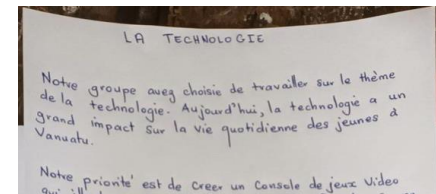 LA TECHNOLOGIE
Notre groupe avez choisie de travailler sur le thème
de la technologie. Aujourd'hui, la technologie a un
grand impact sur la vie quotidienne des jeunes à
Vanuatu.
Notre priorité est de Creer un Console de jeux Video
qui